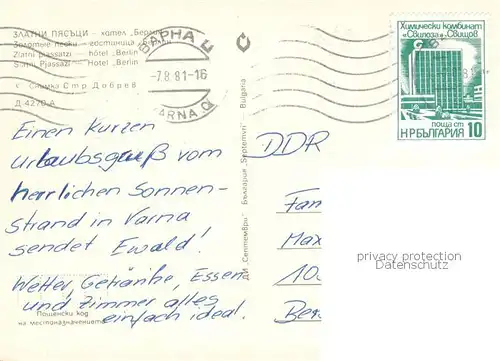 ЗЛАТНИ ПЯСЪЦИ — хотел „Берлин"
Золотые пески — гостиница „Берлин"
Zlatni piassatzi — hôtel „Berlin"
Slatni Pjassazi — Hotel „Berlin"
Снимка Стр. Добрев
Д-4270-А
ВАРНА Ц
-7.8.81-16
VARNA Q
Химически комбинат
„Свилоза" Свищов
поща ст
НР БЪЛГАРИЯ 10
Einen Kurzen
Urlaubsgruß vom
herrlichen Sonnen-
strand in Varna
sendet Ewald!
Wetter, Getränke, Essen
und Zimmer alles
einfach ideal.
Пощенски код
на местоназначението
ДИ „Септември" България „Septemvri" — Bulgaria
DDR
Fam
Max
10
Ber
privacy protection
Datenschutz